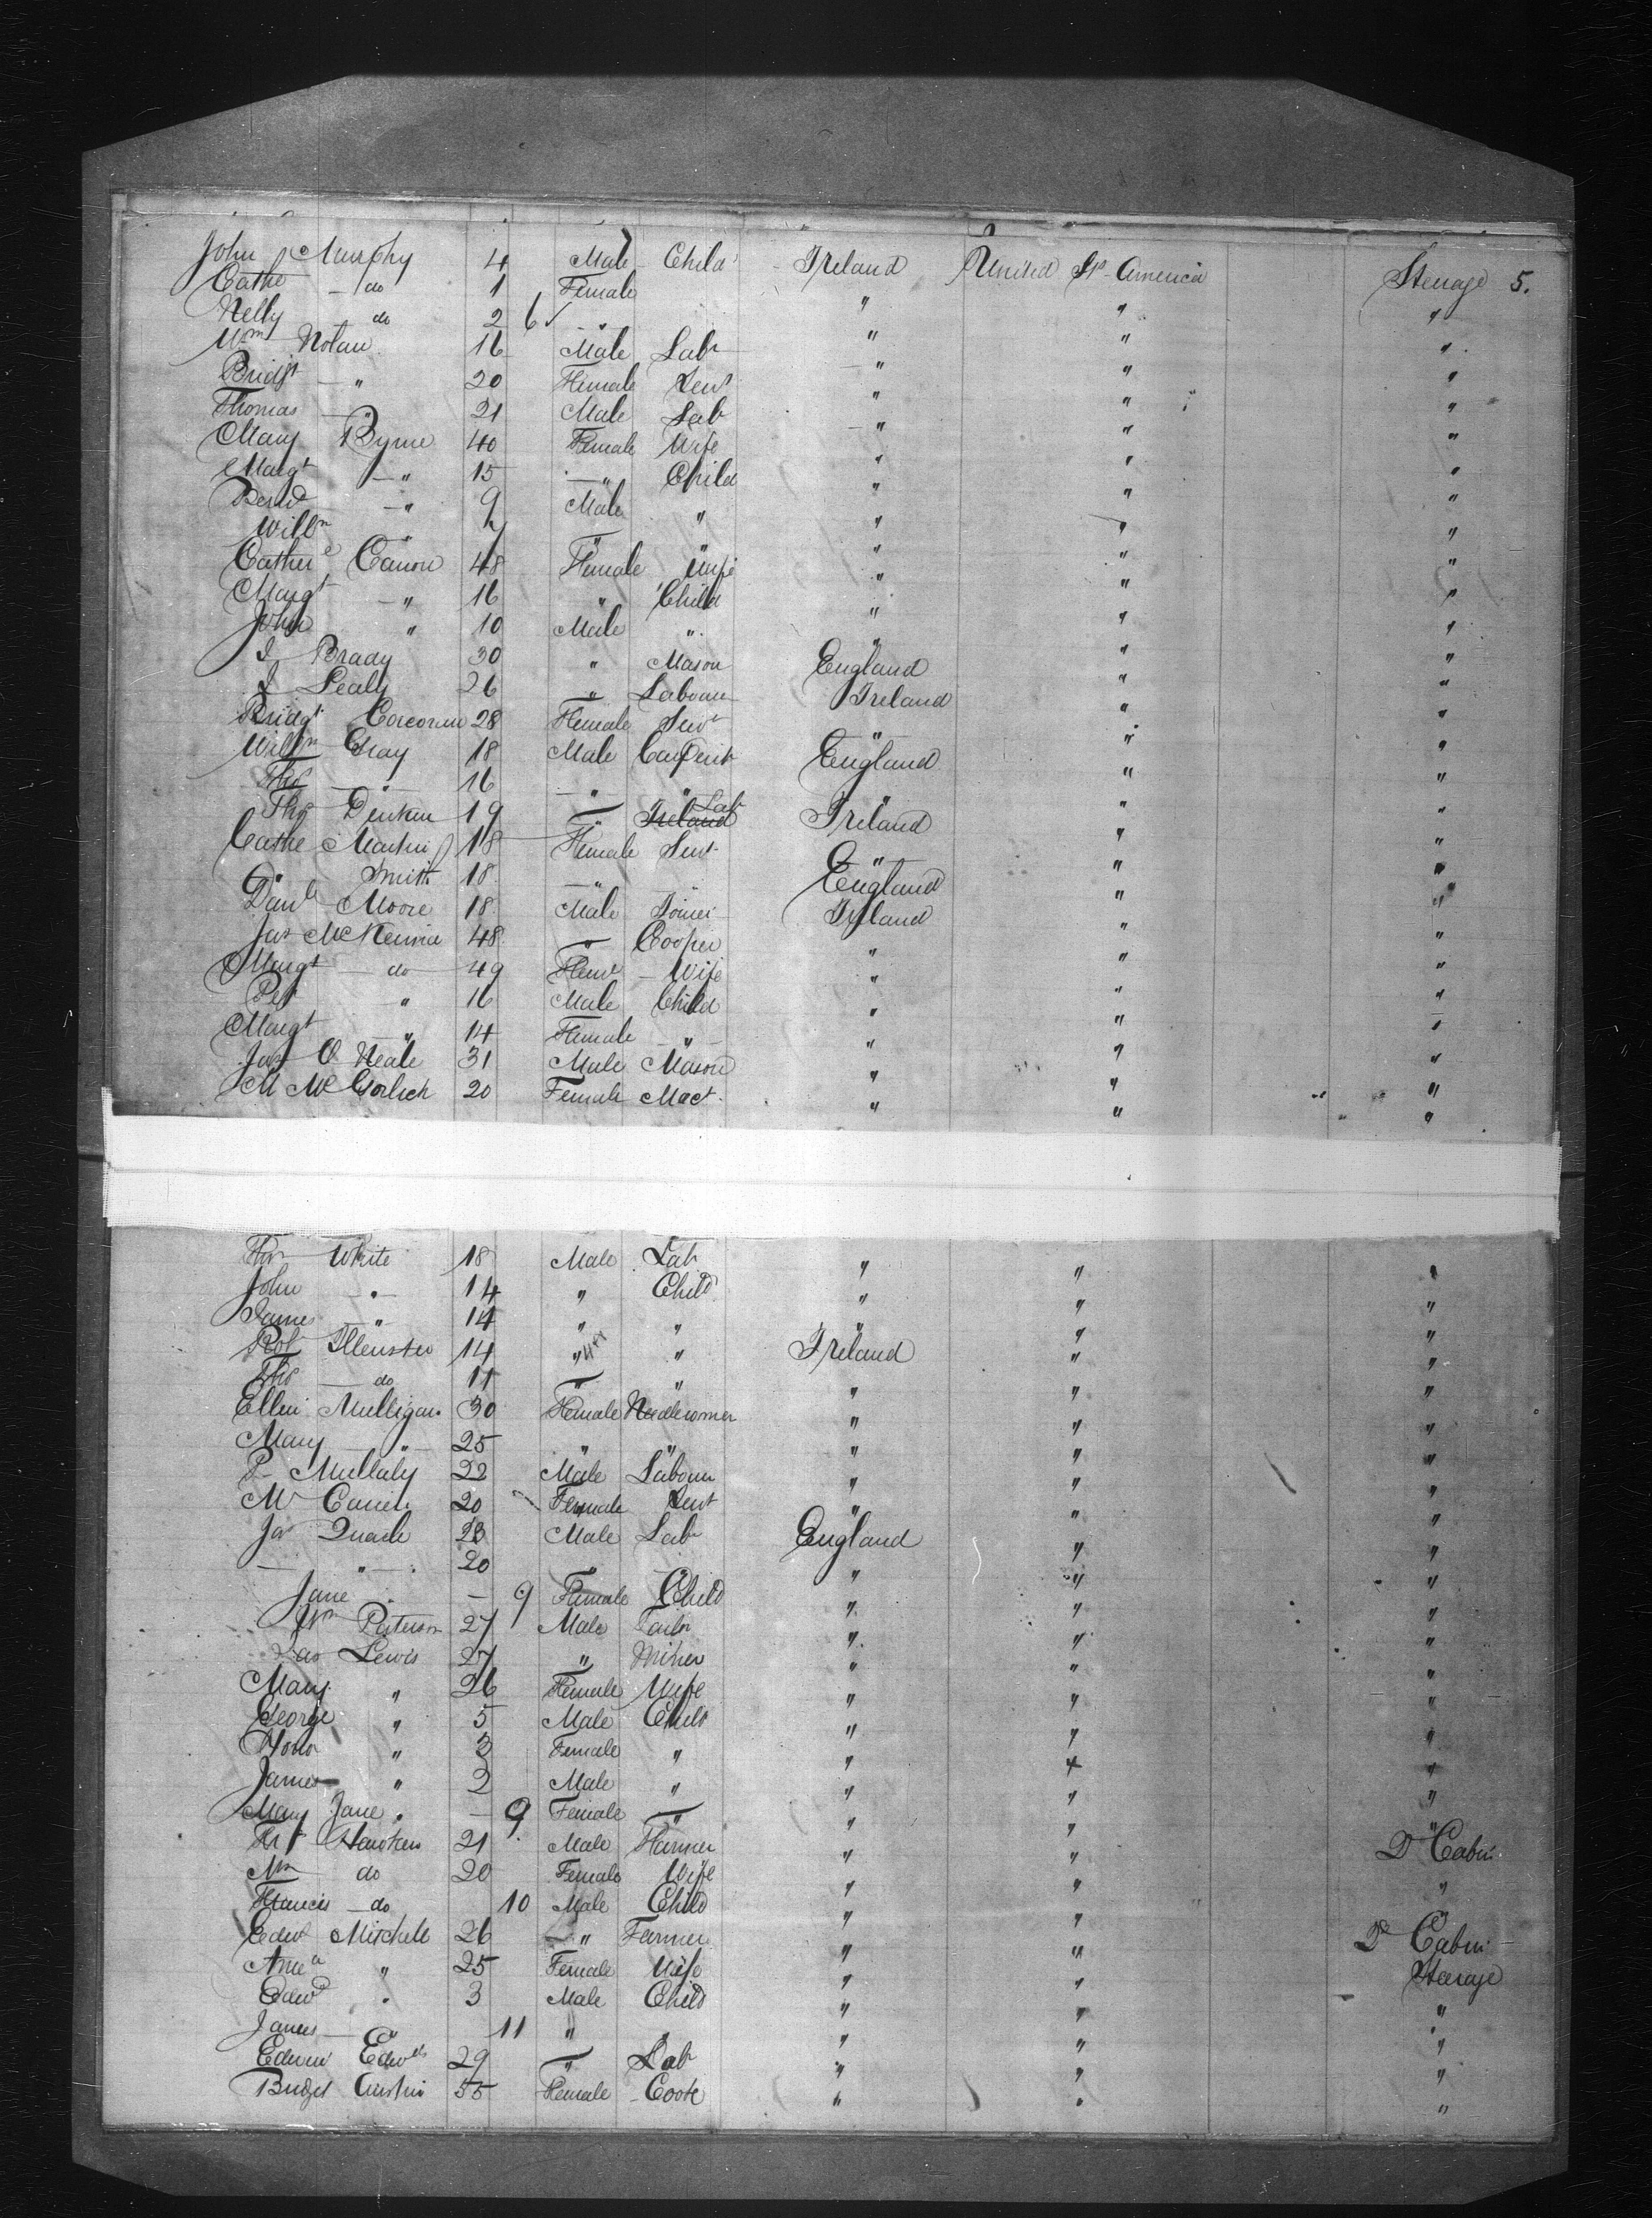 John Murphy 4 Male Child Ireland United Sts America Steerage 5.
Cathe do 1 Female " " "
Nelly do 2 6 ✓ " " " "
Wm Nolan 16 Male Labr " " "
Bridgt " 20 Female Servt " " "
Thomas " 21 Male Labr " " "
Mary Byrne 40 Female Wife " " "
Margt " 15 " Child " " "
Bernd " 9 Male " " " "
Willm " 7 " " " " "
Cathere Canon 48 Female Wife " " "
Margt " 16 " Child " " "
John " 10 Male " " " "
J Brady 30 " Mason England " "
J Lealy 26 " Labourer Ireland " "
Bridgt Corcoran 28 Female Servt " " "
Willm Gray 18 Male Carpentr England " "
Thos " 16 " " " " "
Thos Dinken 19 " Labr Ireland " "
Cathe Martin 18 Female Servt " " "
" Smith 18 " England " "
Danl Moore 18 Male Joiner Ireland " "
Jas McKennie 48 " Cooper " " "
Margt do 49 Feme Wife " " "
Petr " 16 Male Child " " "
Margt " 14 Female " " " "
Jas O Neale 31 Male Mason " " "
M Mc 20 Female " " "
Thos White 18 Male Labr " " "
John " 14 " Child " " "
James " 14 " " " " "
Robt 14 " " Ireland " "
Thos do 11 " " " " "
Ellen Mulligan 30 Female Needlewomen " " "
Mary " 25 " " " " "
P Mullaly 22 Male Labourer " " "
M 20 Female Servt " " "
Jas Quade 23 Male Labr England " "
" 20 " " " "
Jane — 9 Female Child " " "
Wm Paterson 27 Male Tailor " " "
Lewis 27 " Miner " " "
Mary " 26 Female Wife " " "
George " 5 Male Child " " "
" 3 Female " " " "
James " 2 Male " " " "
Mary Jane " — 9 Female " " " "
Hawken 21 Male Farmer " " 2d Cabin
Mrs do 20 Female Wife " " "
Francis do 10 Male Child " " "
Edwd Mitchell 26 " Farmer " " 2d Cabin
Anna " 25 Female Wife " " Steerage
Edwd " 3 Male Child " " "
James " 11 " " " " "
Edwin Edwds 29 " Labr " " "
Bridget 55 Female Cook " " "